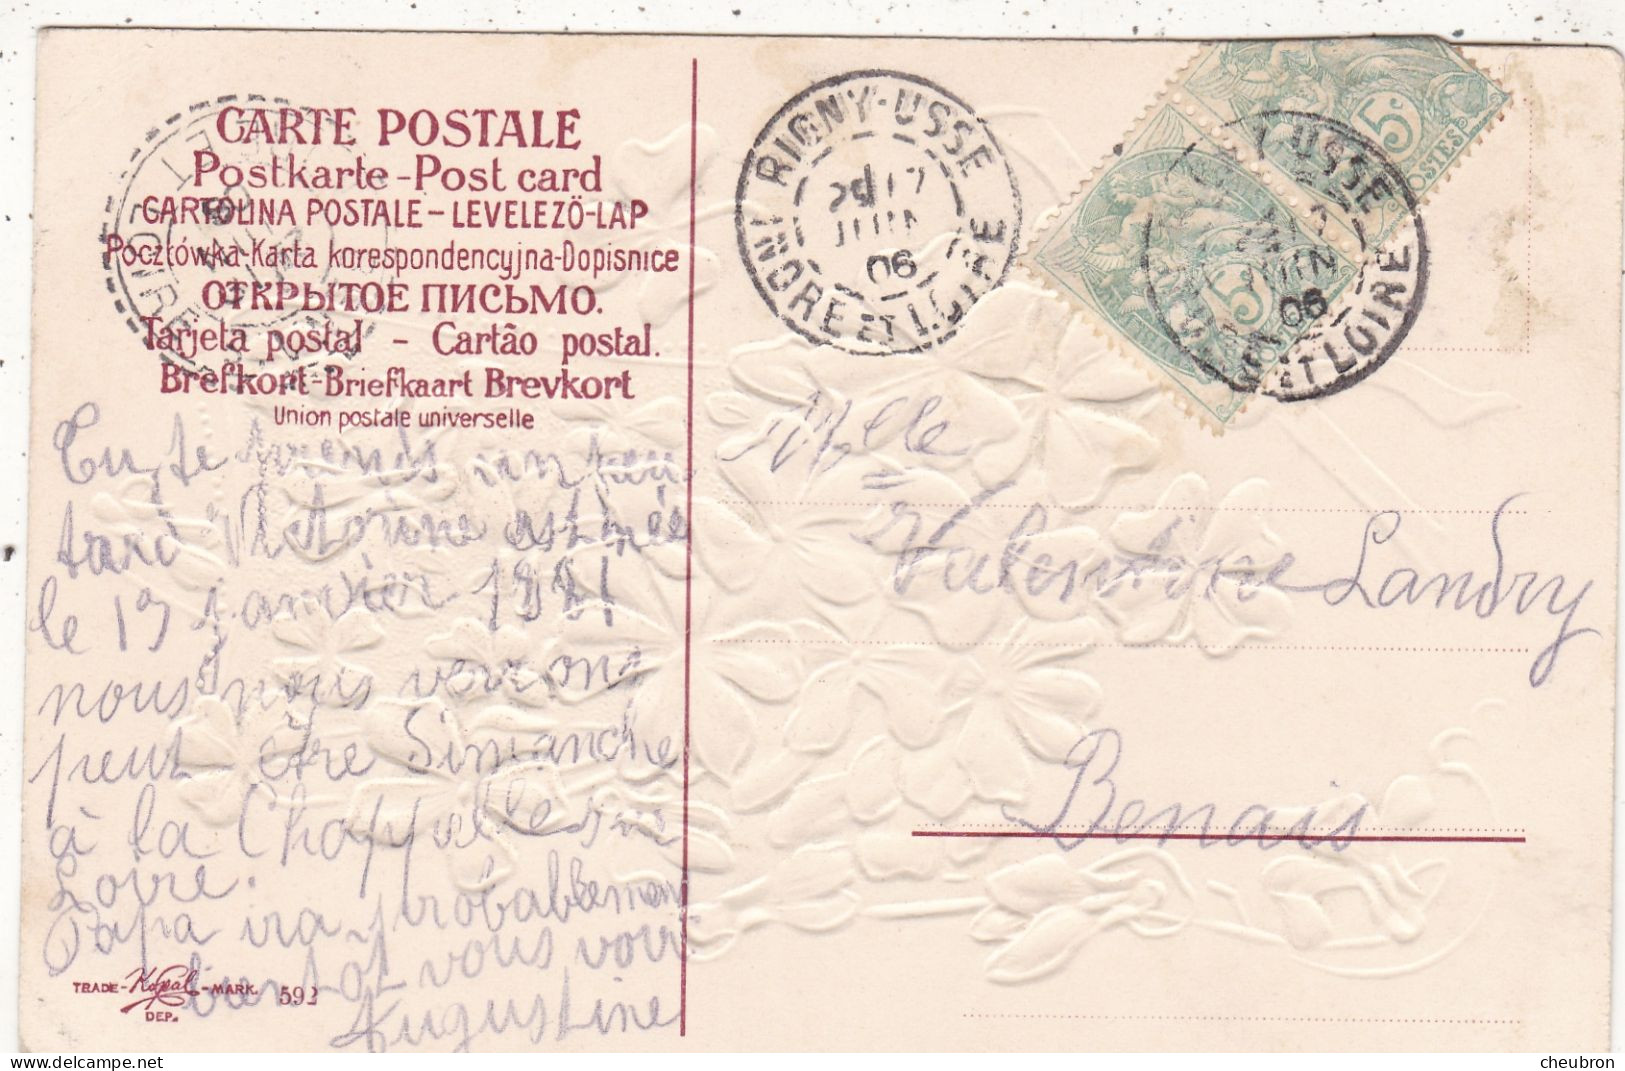 CARTE POSTALE
Postkarte - Post card
CARTOLINA POSTALE - LEVELEZÖ-LAP
Pocztówka-Karta korespondencyjna-Dopisnice
ОТКРЫТОЕ ПИСЬМО.
Tarjeta postal - Cartão postal.
Brefkort-Briefkaart Brevkort
Union postale universelle
RIGNY-USSÉ
17
JUIN
06
INDRE ET LOIRE
5c
POSTES
5c
USSÉ
JUIN
06
ET LOIRE
Tu te prends un peu
tard Victorine est née
le 19 janvier 1881
nous nous verrons
peut-être Dimanche
à la Chappelle sur
Loire.
Papa ira probablement
bientot vous voir
Augustine
Mlle
Valentine Landry
Benais
TRADE - Kopal - MARK. 592
DEP.
cheubron